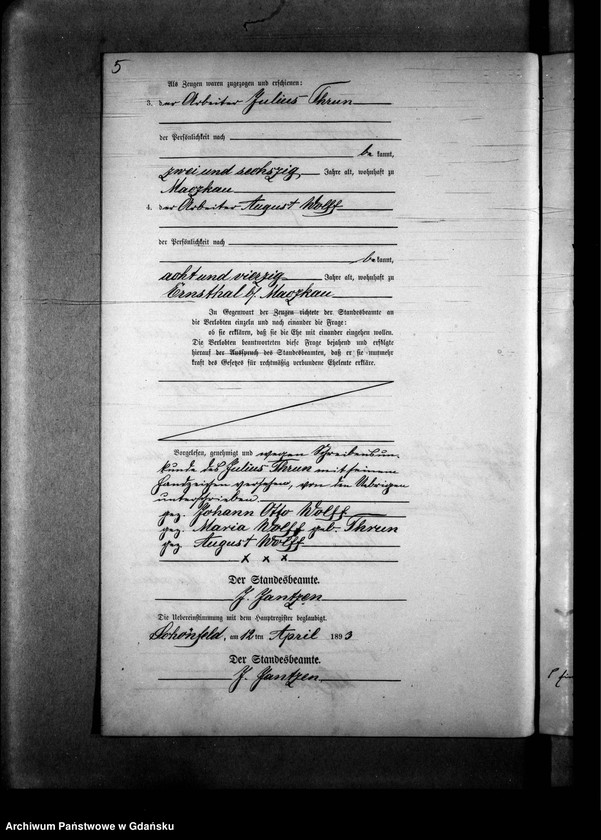 5
Als Zeugen waren zugezogen und erschienen:
3. der Arbeiter Julius Thrun
der Persönlichkeit nach
be kannt,
zwei und sechszig Jahre alt, wohnhaft zu
Maczkau
4. der Arbeiter August Wolff
der Persönlichkeit nach
be kannt,
acht und vierzig Jahre alt, wohnhaft zu
Ernsthal b/ Maczkau
In Gegenwart der Zeugen richtete der Standesbeamte an
die Verlobten einzeln und nach einander die Frage:
ob sie erklären, daß sie die Ehe mit einander eingehen wollen.
Die Verlobten beantworteten diese Frage bejahend und erfolgte
hierauf der Ausspruch des Standesbeamten, daß er sie nunmehr
kraft des Gesetzes für rechtmäßig verbundene Eheleute erkläre.
Vorgelesen, genehmigt und wegen Schreibenun-
kunde des Julius Thrun mit seinem
Handzeichen versehen, von den Uebrigen
unterschrieben.
gez. Johann Otto Wolff
gez. Maria Wolff geb. Thrun
gez. August Wolff
x x x
Der Standesbeamte.
J. Jantzen
Die Uebereinstimmung mit dem Hauptregister beglaubigt.
Schönfeld, am 12 ten April 1893
Der Standesbeamte.
J. Jantzen
Archiwum Państwowe w Gdańsku